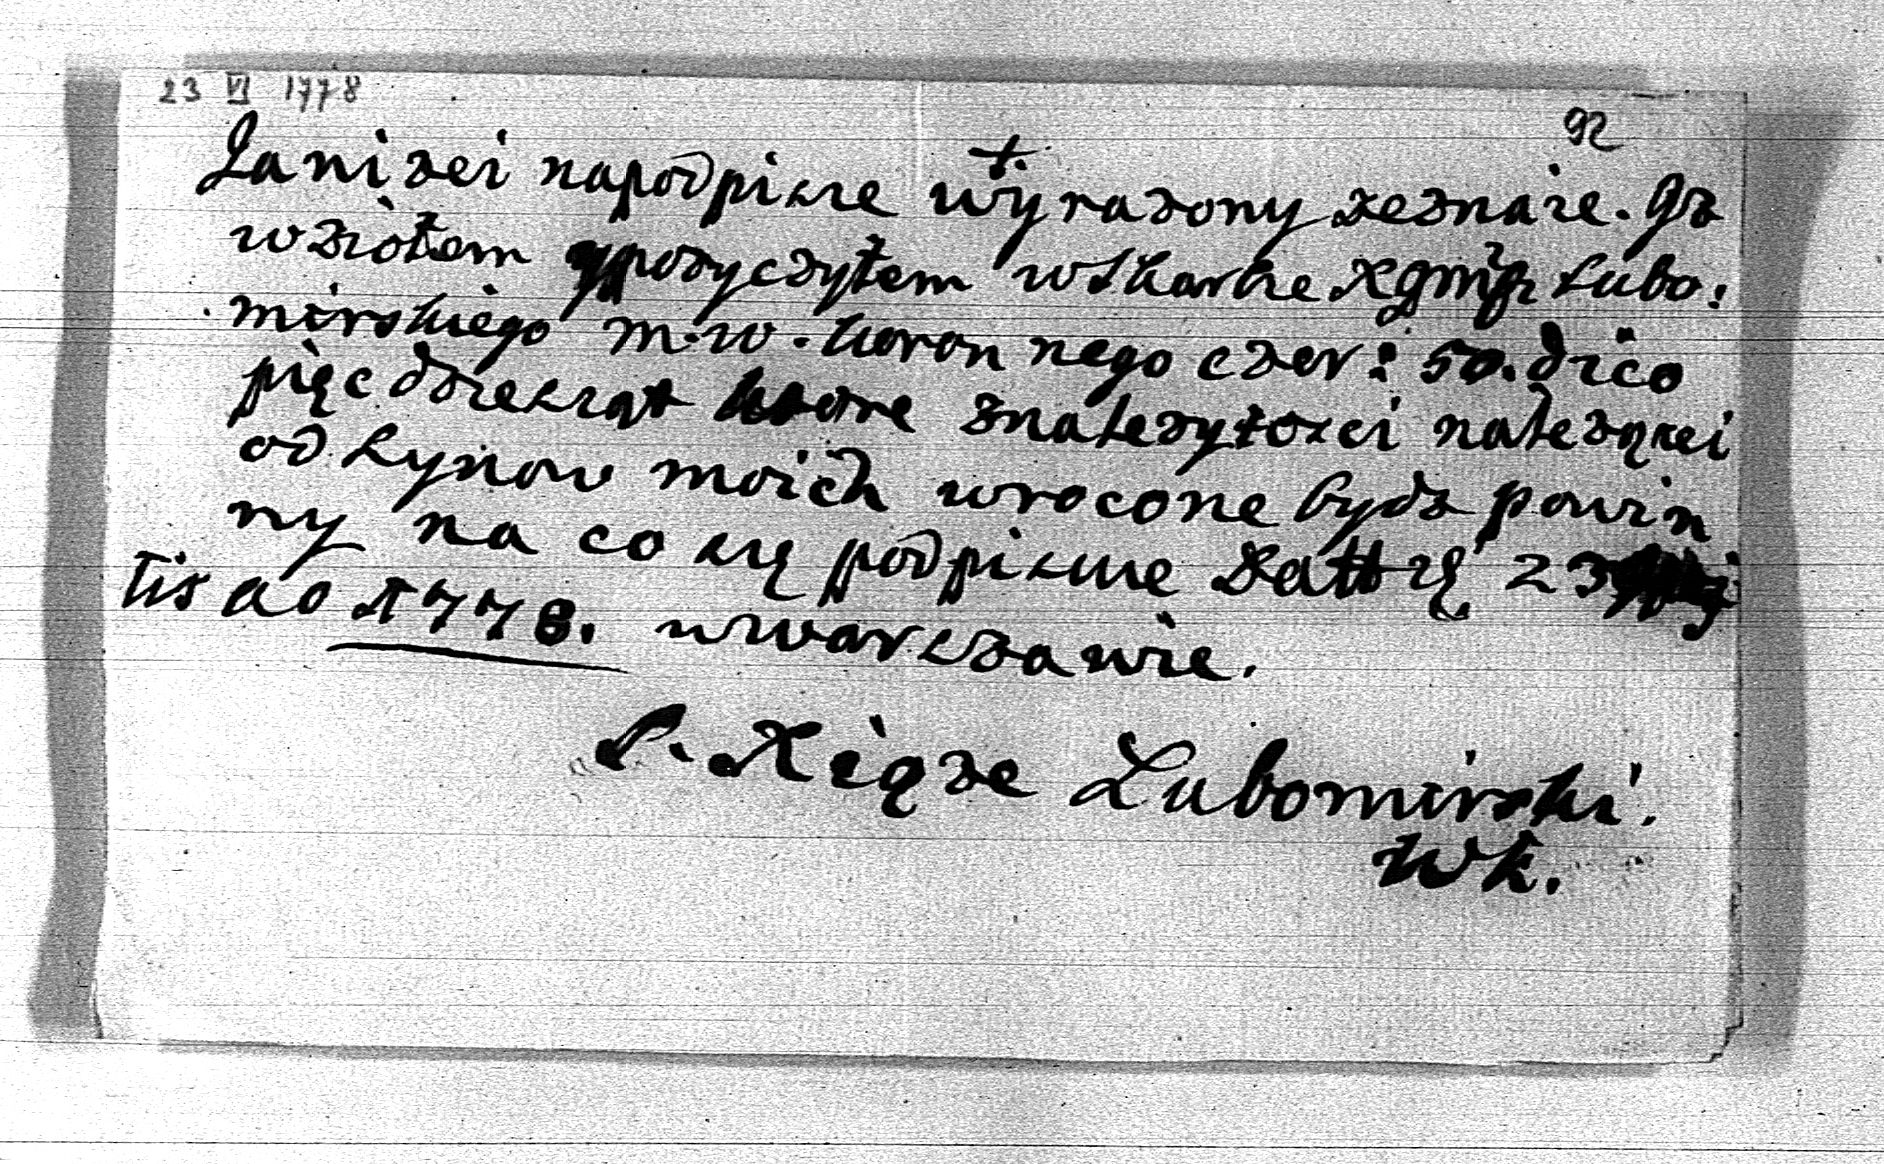 23 VI 1778
92
†.
Ja nizei napodpisie wyrazony zeznaie. Jz
wziołem ypozyczyłem wskarbie Xgmśp Lubo:
mirskiego m.w. koronnego czer: 50. dico
pięcdziesząt ktore znalezytosci nalezącei
od synow moich wrocone bydz powin
ny na co się podpisuie Dattę 23
tis ao 1778. wwarszawie.
S. Xiąze Lubomirski.
Wk.